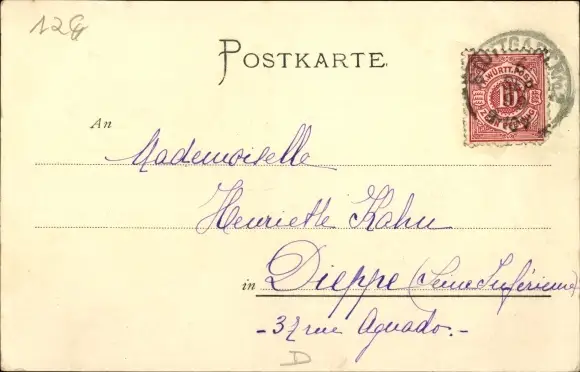 POSTKARTE.
STUTTGART
K. WÜRTT. POST
10
An
Mademoiselle
Henriette Kahn
in Dieppe (Seine Inférieure)
- 32 rue Aguado. -
D